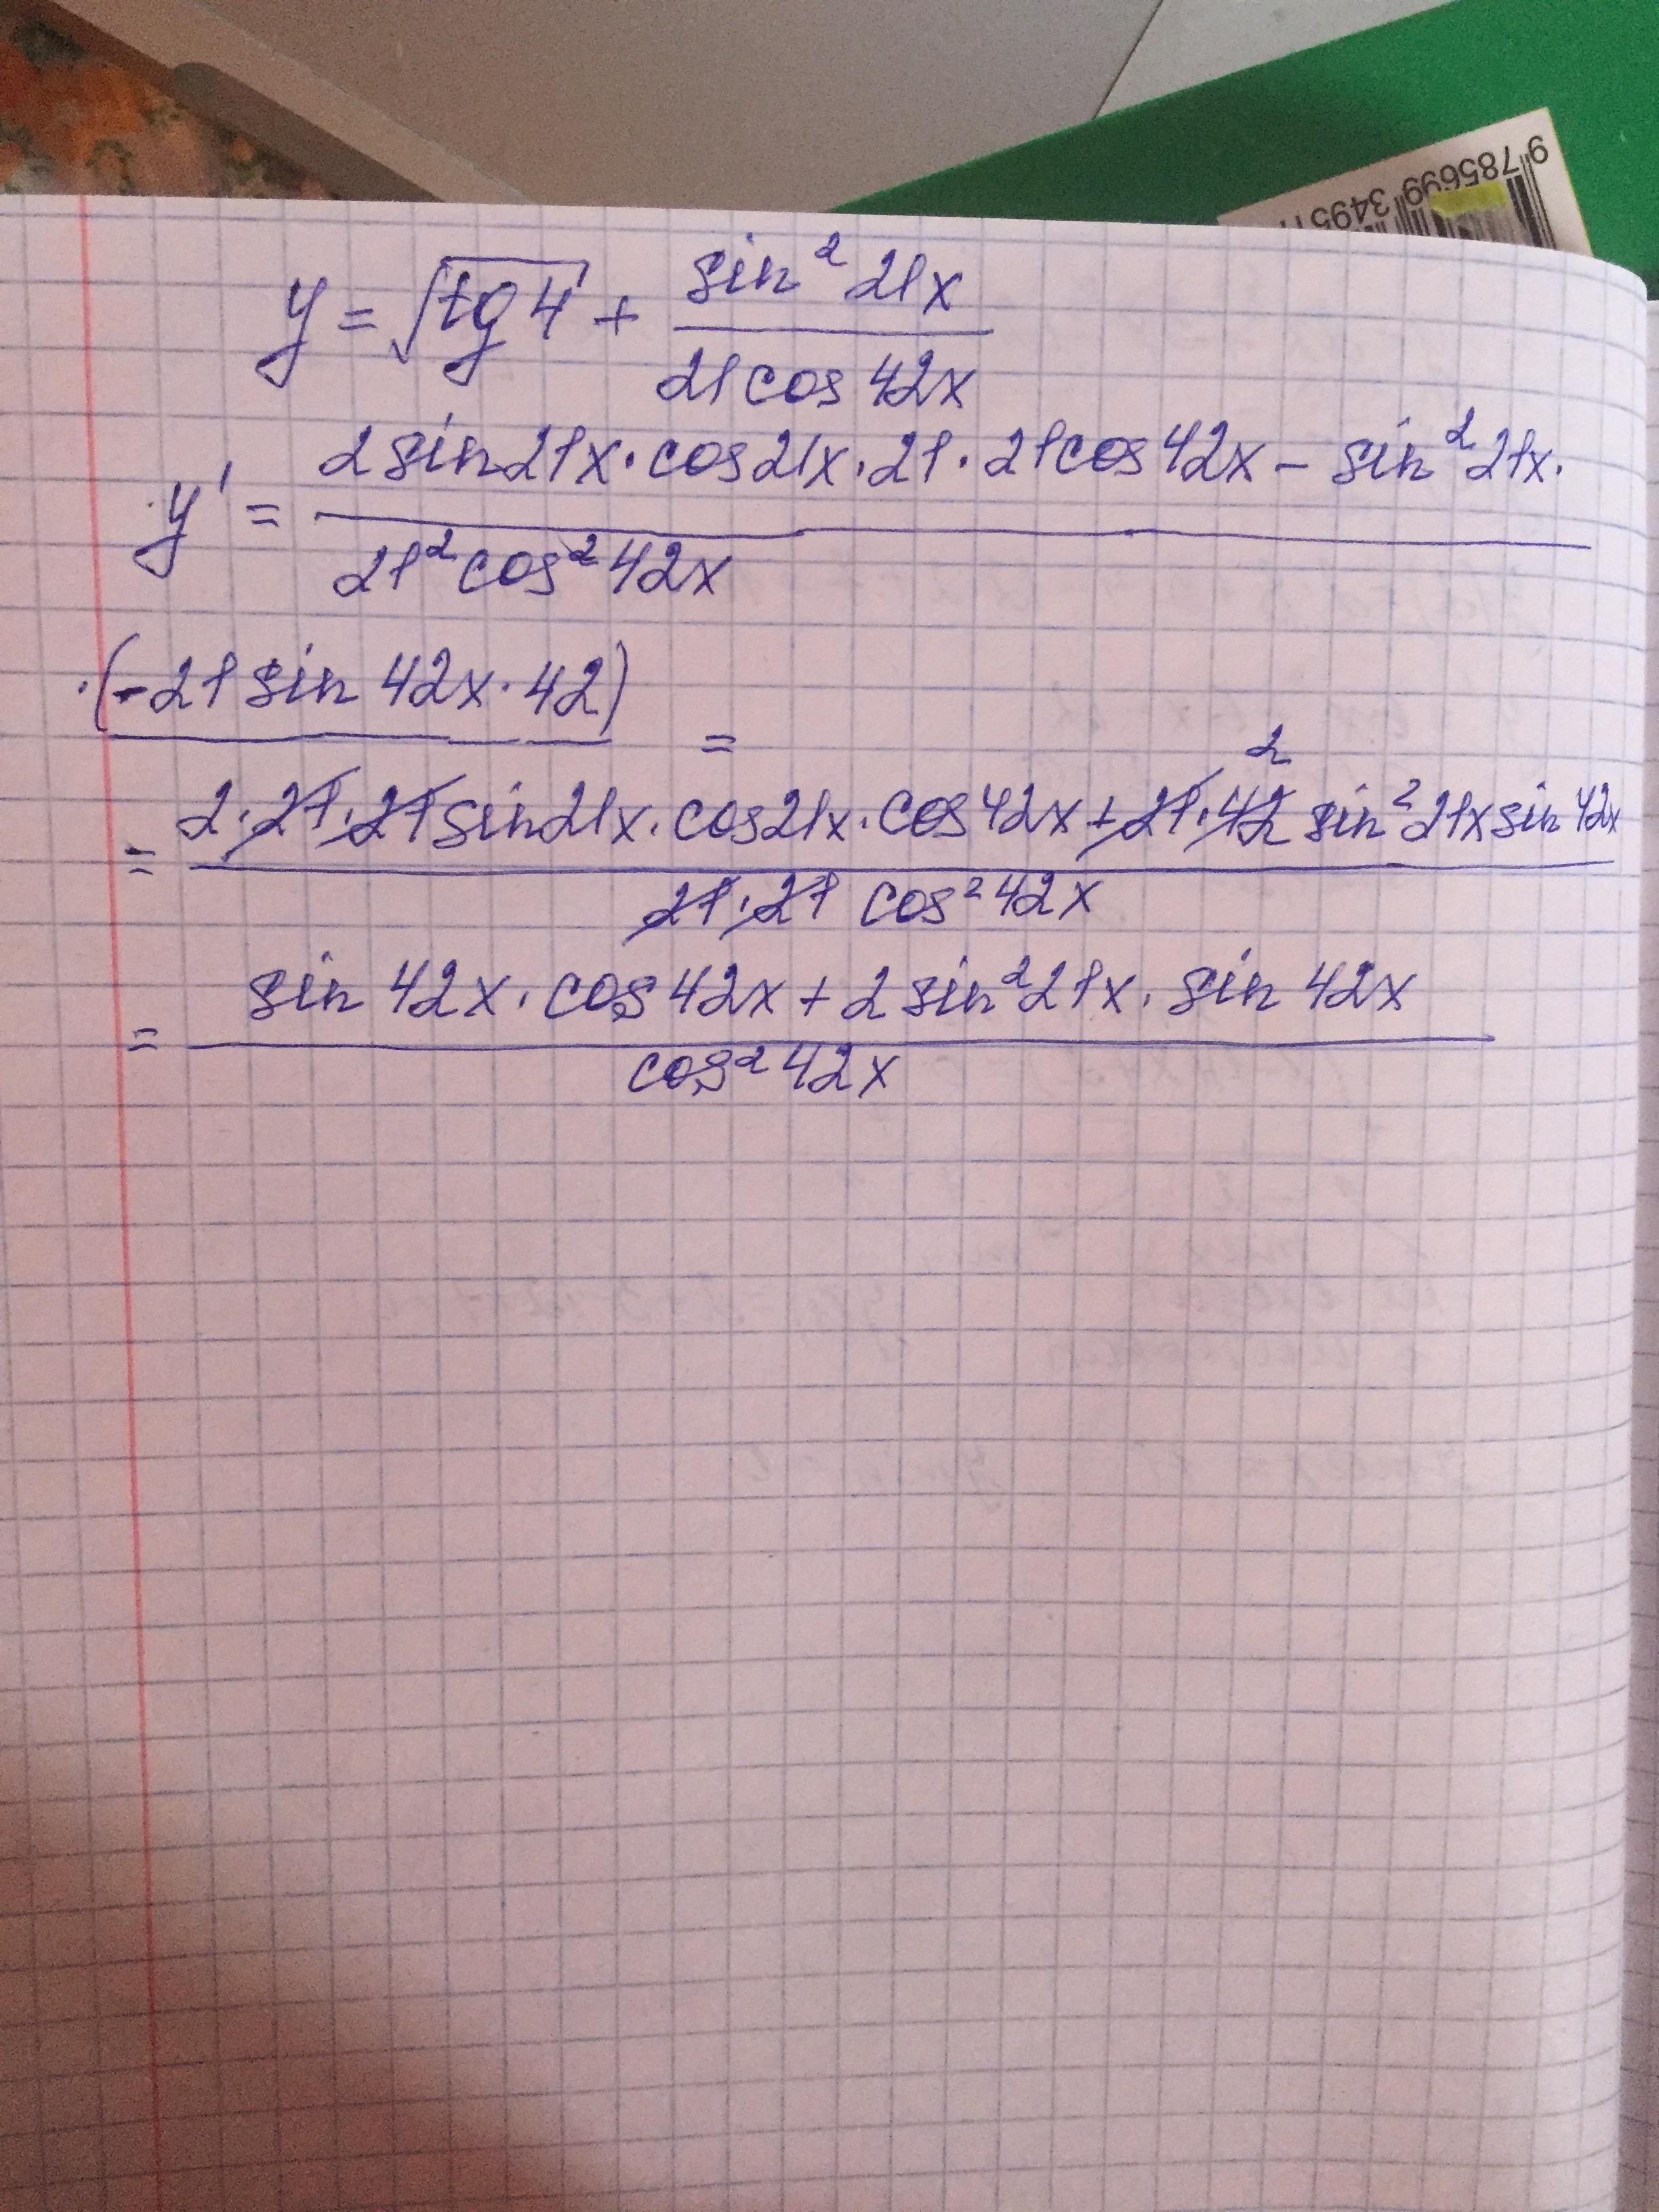 9 785699 3495
y = √tg 4 + sin² 21x / 21 cos 42x
y' = 2 sin 21x · cos 21x · 21 · 21 cos 42x − sin² 21x · / 21² cos² 42x
· (−21 sin 42x · 42) =
= 2 · 21 · 21 sin 21x · cos 21x · cos 42x + 21 · 42 2 sin² 21x sin 42x / 21 · 21 cos² 42x
= sin 42x · cos 42x + 2 sin² 21x · sin 42x / cos² 42x